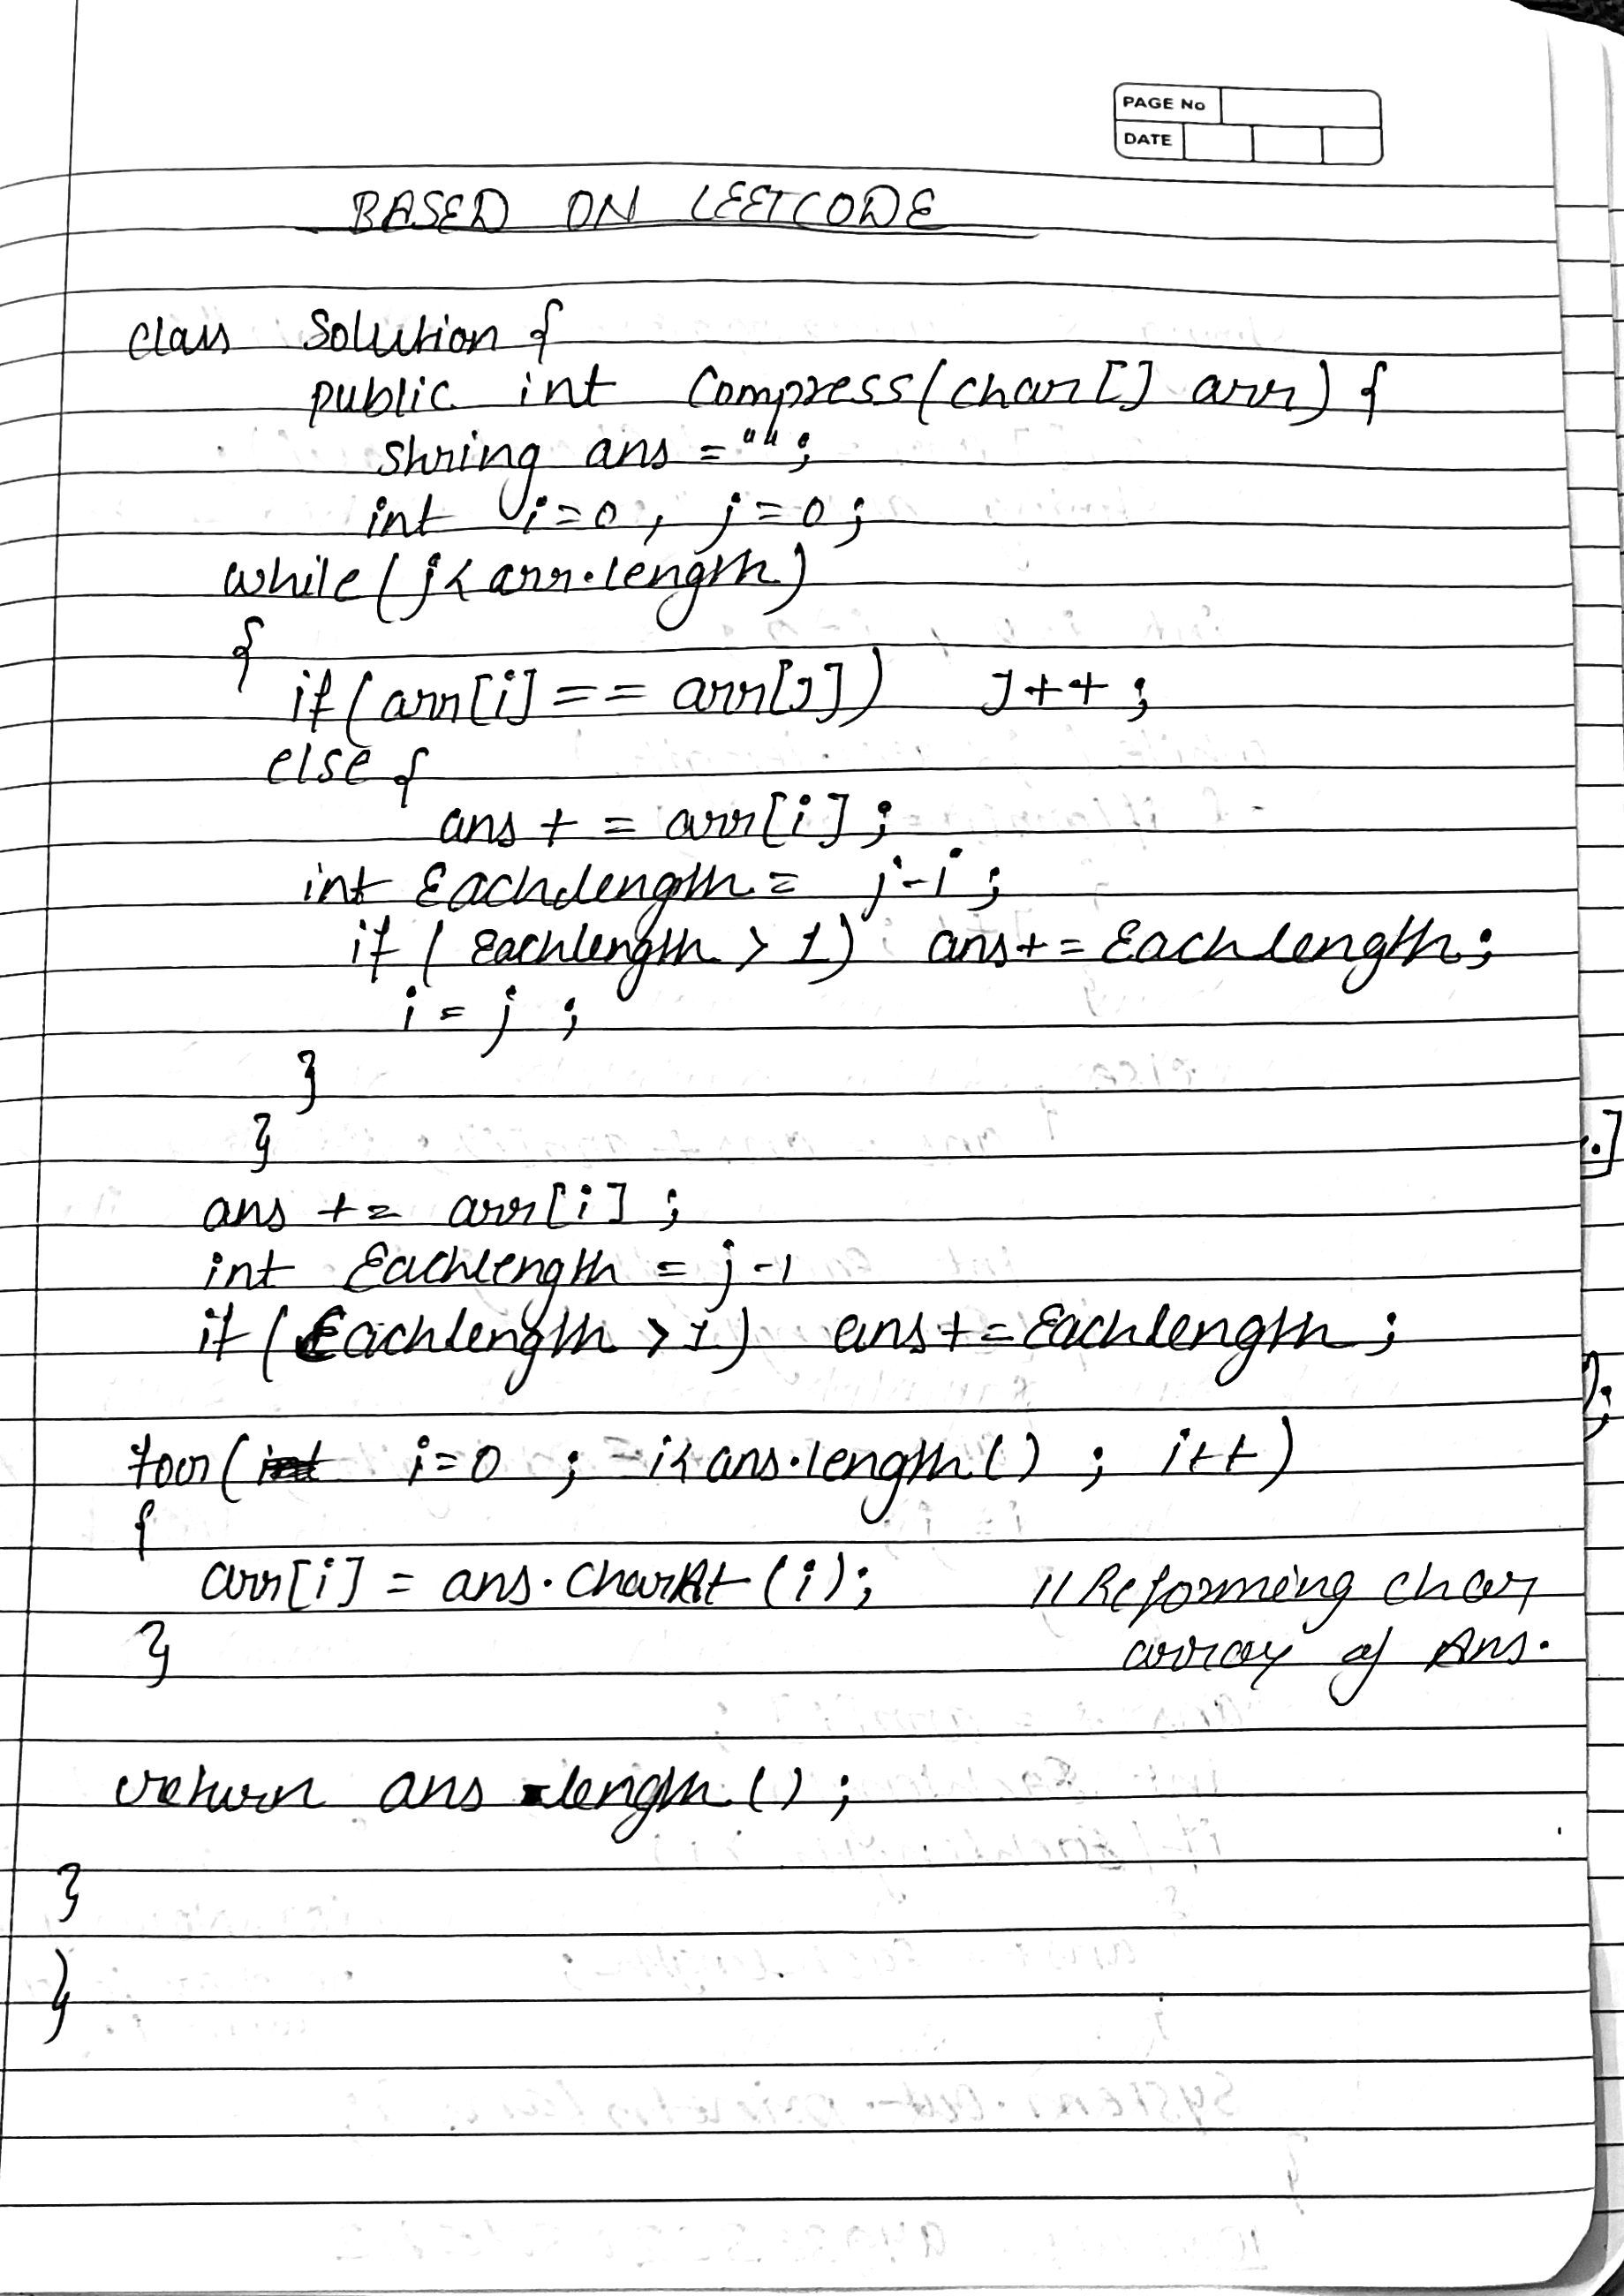 PAGE No
DATE
BASED ON LEETCODE
class Solution {
public int Compress(char[] arr) {
string ans = "";
int i=0, j=0;
while(j<arr.length)
{
if(arr[i] == arr[J]) J++;
else {
ans += arr[i];
int Eachlength = j-i;
if(Eachlength > 1) ans += Eachlength;
i = j;
}
}
ans += arr[i];
int Eachlength = j-1
if(Eachlength > 1) ans += Eachlength;
for( i=0 ; i< ans.length() ; i++)
{
arr[i] = ans.CharAt(i); // Reforming char
array of Ans.
}
return ans.length();
}
}